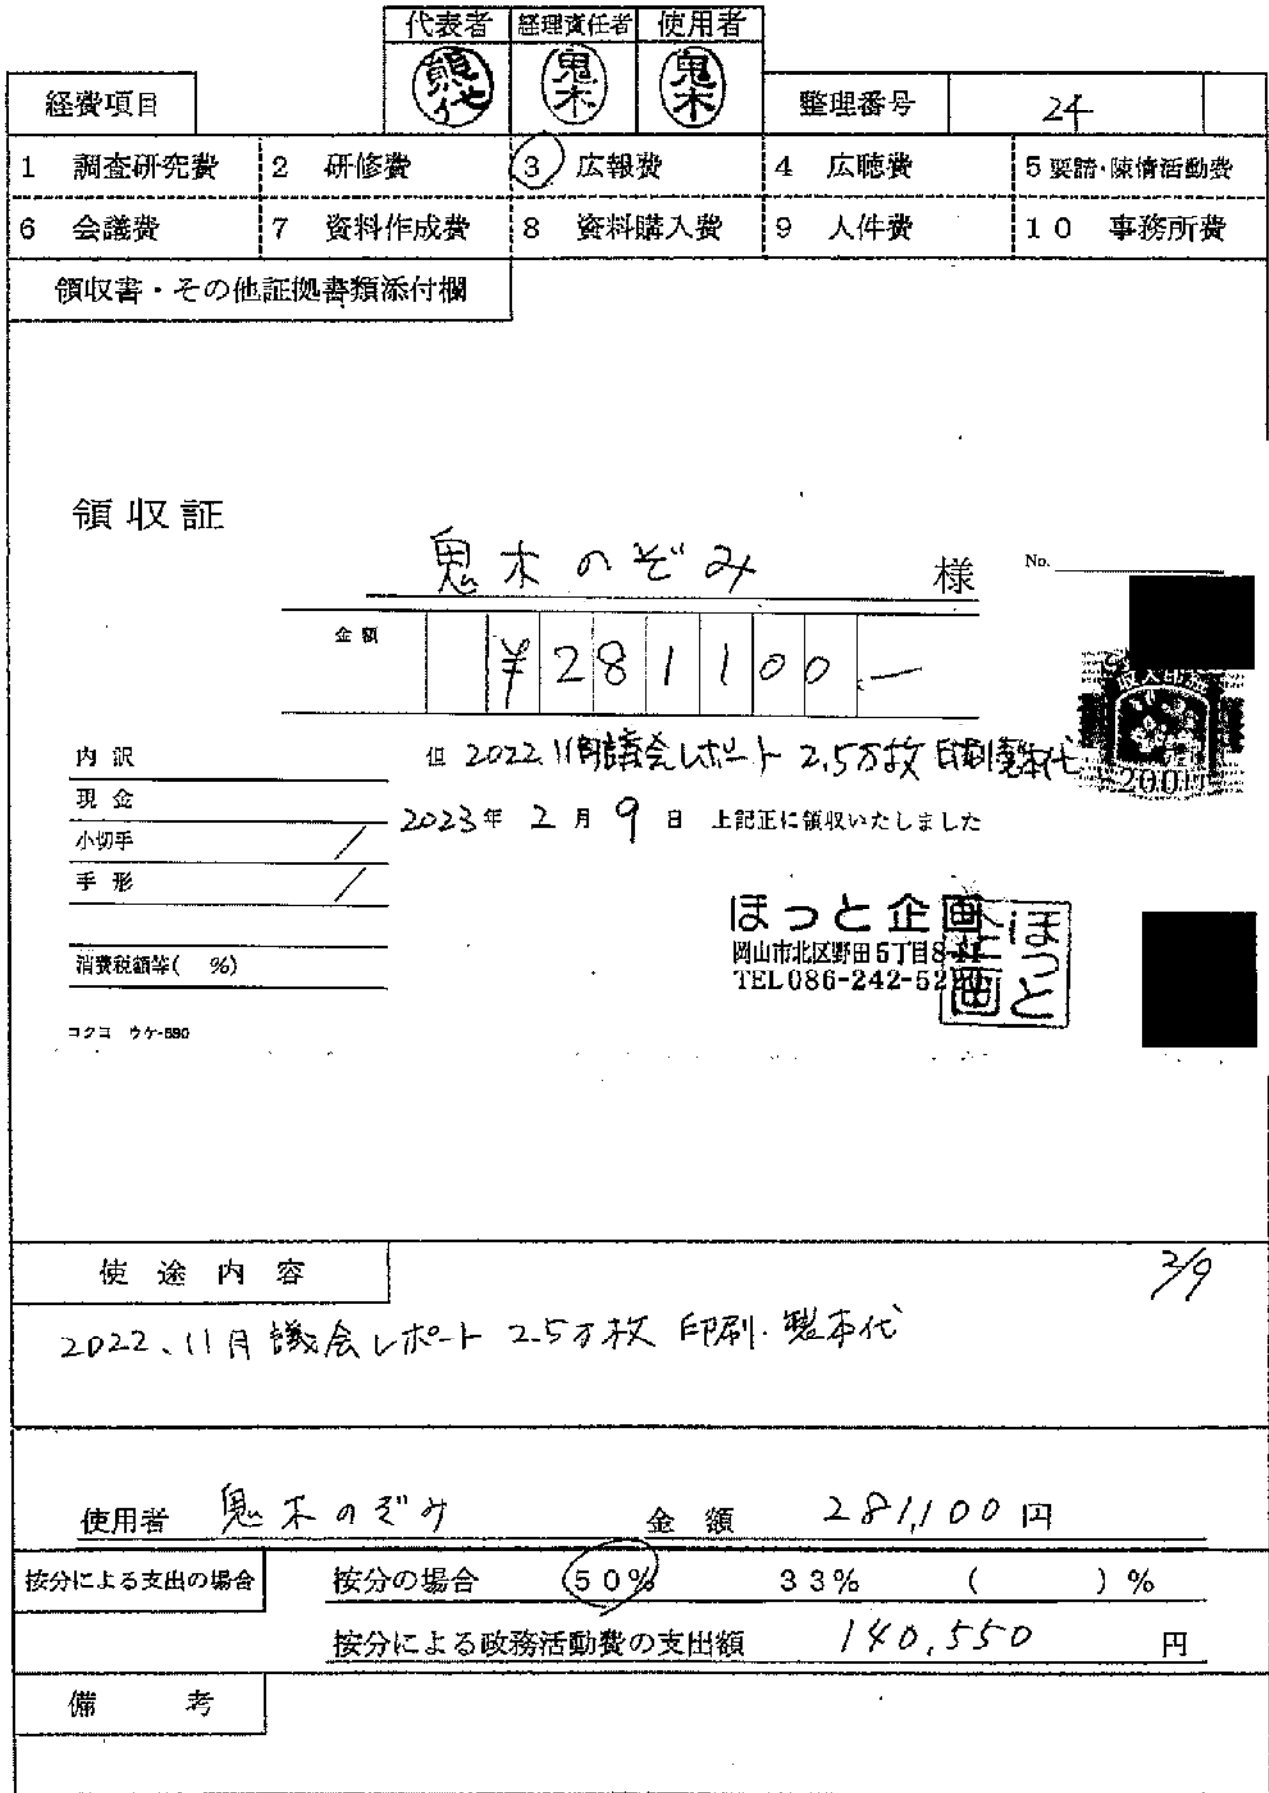 代表者 経理責任者 使用者
熊代 鬼木 鬼木
経費項目 整理番号 24
1 調査研究費 2 研修費 3 広報費 4 広聴費 5 要請・陳情活動費
6 会議費 7 資料作成費 8 資料購入費 9 人件費 10 事務所費
領収書・その他証拠書類添付欄
領収証
鬼木のぞみ 様 No.
金額 ¥281100.-
収入印紙
200円
内訳 但 2022.11月議会レポート 2.5万枚 印刷製本代
現金
2023年 2月 9日 上記正に領収いたしました
小切手 /
手形 /
ほっと企画
岡山市北区野田5丁目8-11
TEL086-242-52
ほっと企画
消費税額等( %)
コクヨ ウケ-690
使途内容 2/9
2022、11月議会レポート 2.5万枚 印刷・製本代
使用者 鬼木のぞみ 金額 281,100円
按分による支出の場合 按分の場合 50% 33% ( )%
按分による政務活動費の支出額 140,550 円
備考